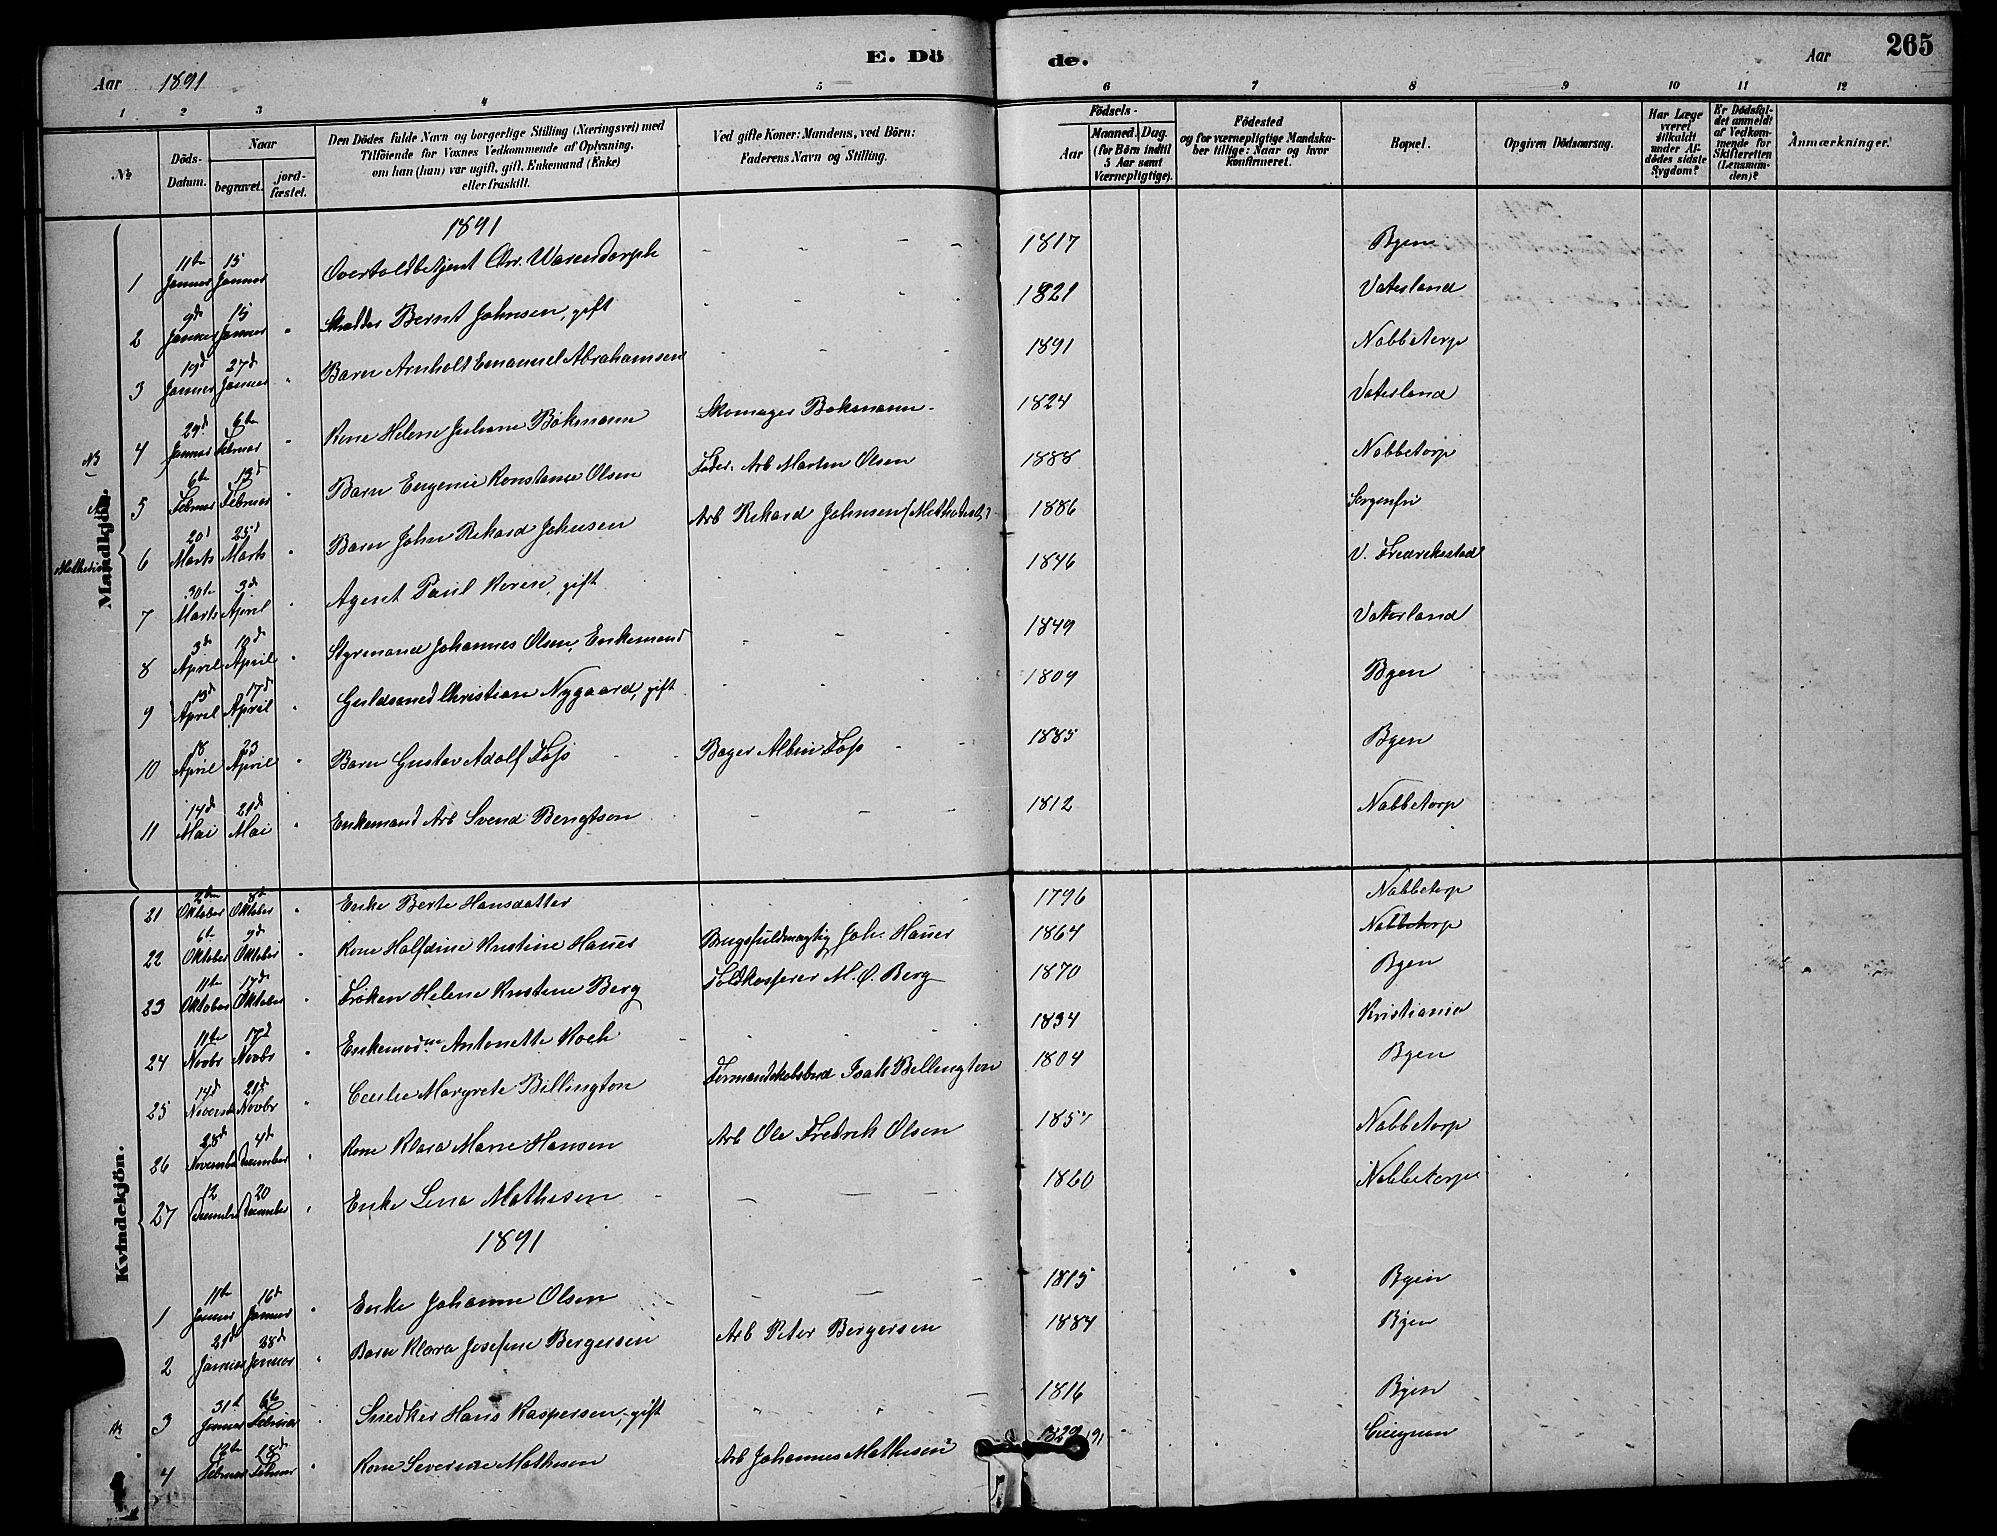 E. Dö de.
265
Aar 1891
Aar
1 2 3 4 5 6 7 8 9 10 11 12
№
Döds-Datum.
Naar
begravet.
jord-fæstet.
Den Dödes fulde Navn og borgerlige Stilling (Næringsvei) med
Tilföiende for Voxnes Vedkommende af Oplysning,
om han (hun) var ugift, gift, Enkemand (Enke)
eller fraskilt.
Ved gifte Koner: Mandens, ved Börn:
Faderens Navn og Stilling.
Födsels-
Aar
Maaned. Dag.
(for Börn indtil
5 Aar samt
Værnepligtige).
Födested
og for værnepligtige Mandska-
ber tillige: Naar og hvor
konfirmeret.
Bopæl.
Opgiven Dödsaarsag.
Har Læge
været
tilkaldt
under Af-
dödes sidste
Sygdom?
Er Dödsfal-
det anmeldt
af Vedkom-
mende for
Skifteretten
(Lensman-
den)?
Anmærkninger.
Mandkjön.
1891
1 11te Januar 15 Januar Overtoldbetjent Chr. Warendorph 1817 Byen
2 9d Januar 15 Januar Skrædder Bernt Johnsen, gift 1821 Vaterland
3 19d Januar 27d Januar Barn Arnholt Emanuel Abrahamsen 1891 Nabbetorp
4 29d Januar 6te Februar Kone Helene Juliane Bökmann Skomager Bokmann 1824 Vaterland
NB 5 6te Februar 13d Februar Barn Eugenie Konstance Olsen Fader. Arb Martin Olsen 1888 Nabbetorp
6 20d Marts 25d Marts Barn John Rikard Johnsen Arb Rikard Johnsen (Methodist) 1886 Sorgenfri
7 30te Marts 3d April Agent Paul Koren, gift 1846 V. Fredriksstad
8 3d April 12d April Styrmand Johannes Olsen, Enkemand 1849 Vaterland
9 13d April 17d April Guldsmed Christian Nygaard, gift 1809 Byen
10 18 April 23 April Barn Gustav Adolf Foss Bager Albin Foss 1885 Byen
11 14d Mai 21d Mai Enkemand Arb Svend Bengtson 1812 Nabbetorp
Kvindekjön.
21 2den Oktober 8de Oktober Enke Berte Hansdatter 1796 Nabbetorp
22 6te Oktober 9d Oktober Kone Halfdine Kristine Hauer Brugsfuldmægtig Joh. Hauer 1864 Nabbetorp
23 11te Oktober 17d Oktober Fröken Helene Kristine Berg Toldkasserer M. O. Berg 1870 Byen
24 11te Novbr 17d Novbr Antonette Koch 1834 Kristiania
25 14d Novbr 21d Novbr Cecilie Margrete Billington Formandskabsbud Isak Billington 1804 Byen
26 28d November 4d December Kone Klara Marie Hansen Arb Ole Fredrik Olsen 1857 Nabbetorp
27 12 December 20 December Enke Lena Mathisen 1860 Nabbetorp
1891
1 11te Januar 16d Januar Enke Johanne Olsen 1815 Byen
2 21d Januar 28d Januar Barn Klara Josefine Bergersen Arb Peter Bergersen 1884 Byen
3 31te Januar 6te Februar Snedker Hans Kaspersen, gift 1816 Byen
4 12te Februar 18d Februar Kone Severine Mathisen Arb Johannes Mathisen 1829